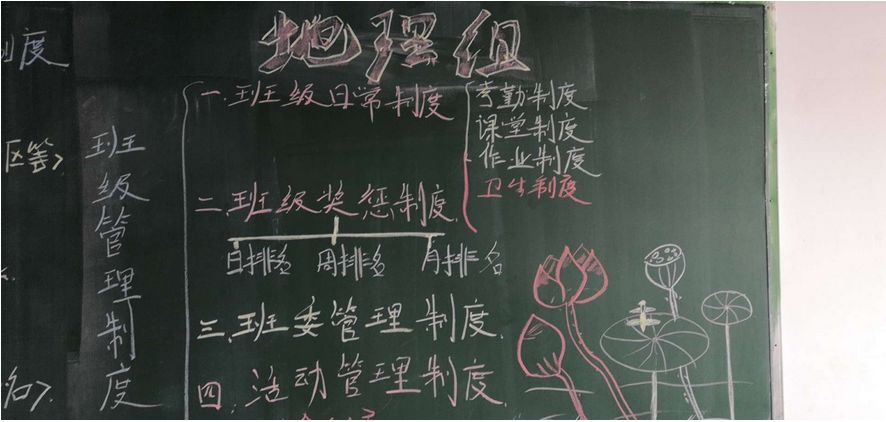 地理组
制度
区等>
名>
班级管理制度
一.班级日常制度
考勤制度
课堂制度
作业制度
卫生制度
二.班级奖惩制度.
日排名 周排名 月排名
三.班委管理制度.
四.活动管理制度